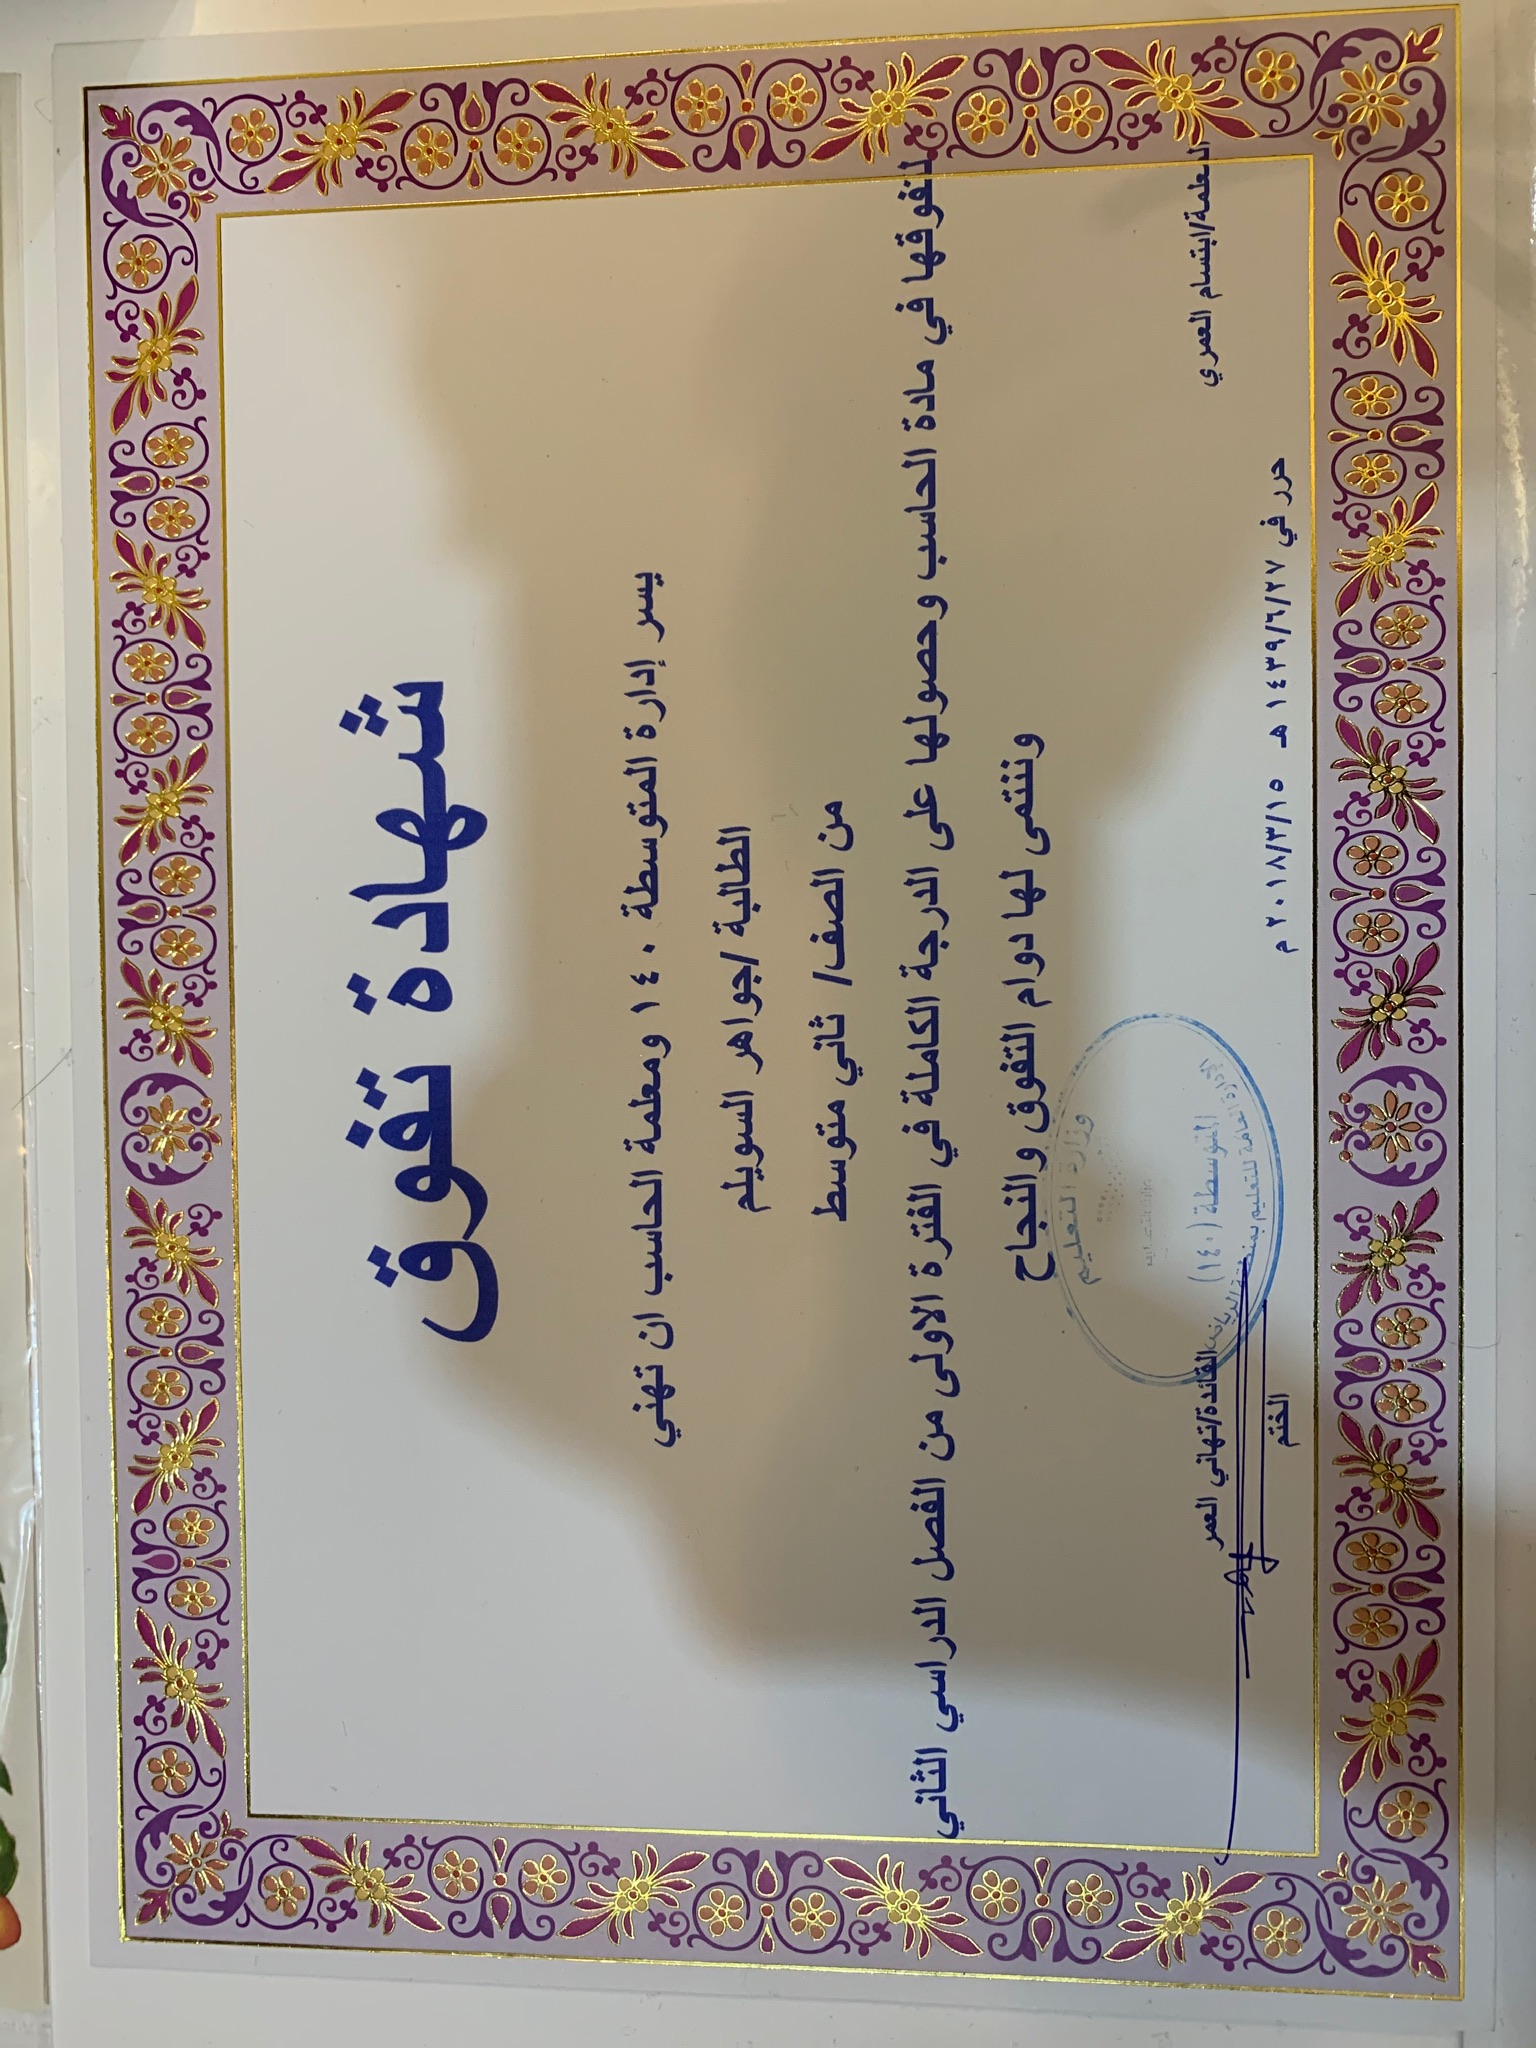 شهادة تفوق
يسر إدارة المتوسطة ١٤٠ ومعلمة الحاسب ان تهني
الطالبة /جواهر السويلم
من الصف/ ثاني متوسط
لتفوقها في مادة الحاسب وحصولها على الدرجة الكاملة في الفترة الاولى من الفصل الدراسي الثاني
ونتمنى لها دوام التفوق والنجاح
المعلمة/ابتسام العمري
القائدة/تهاني العمر
حرر في ١٤٣٩/٦/٢٧ هـ ٢٠١٨/٣/١٥ م
الختم
وزارة التعليم
المتوسطة (١٤٠)
الإدارة العامة للتعليم بمنطقة الرياض